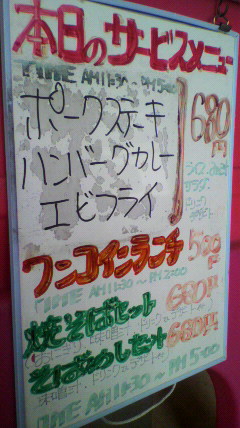 本日のサービスメニュー
TIME AM11:30~PM5:00
ポークステーキ
ハンバーグカレー
エビフライ
680円
サラダ
ワンコインランチ 500円
TIME AM11:30~PM2:00
焼そばセット 680円
そばめしセット 680円
TIME AM11:30~PM5:00